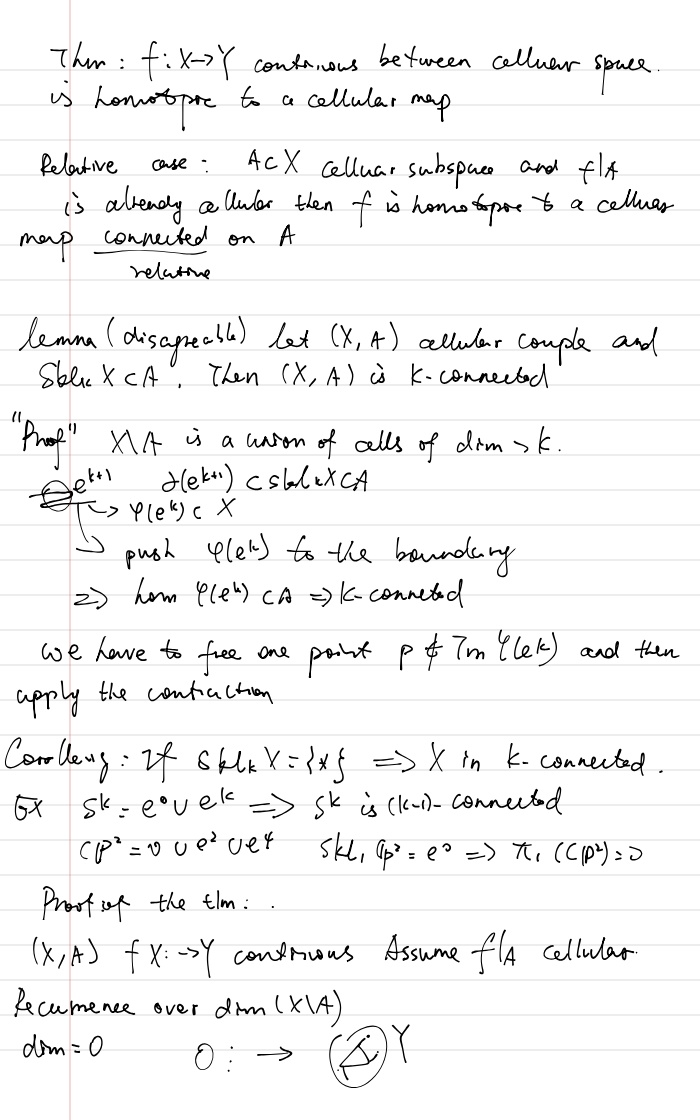 Thm : f : X → Y continous between cellular space.
is homotopic to a cellular map
Relative case : A ⊂ X celluar subspace and f|A
is already cellular then f is homotopic to a cellular
map connected on A
relative
lemma (disagreable) let (X, A) cellular couple and
Skl_k X ⊂ A. Then (X, A) is k-connected
"Proof" X\A is a union of cells of dim > k.
e^{k+1} ∂(e^{k+1}) ⊂ skl_k X ⊂ A
↳ φ(e^k) ⊂ X
→ push φ(e^k) to the boundary
=> hom φ(e^k) ⊂ A => k-conneted
we have to free one point p ∉ Im φ(e^k) and then
apply the contraction
Corollary : If Skl_k X = {*} => X in k-connected.
Ex S^k = e^0 ∪ e^k => S^k is (k-1)-connected
CP^2 = 0 ∪ e^2 ∪ e^4 Skl_1 CP^2 = e^0 => π_1 (CP^2) = 0
Proof of the thm : .
(X, A) f X : → Y continous Assume f|A cellular.
Recurrence over dim (X\A)
dim = 0 0 : → Y